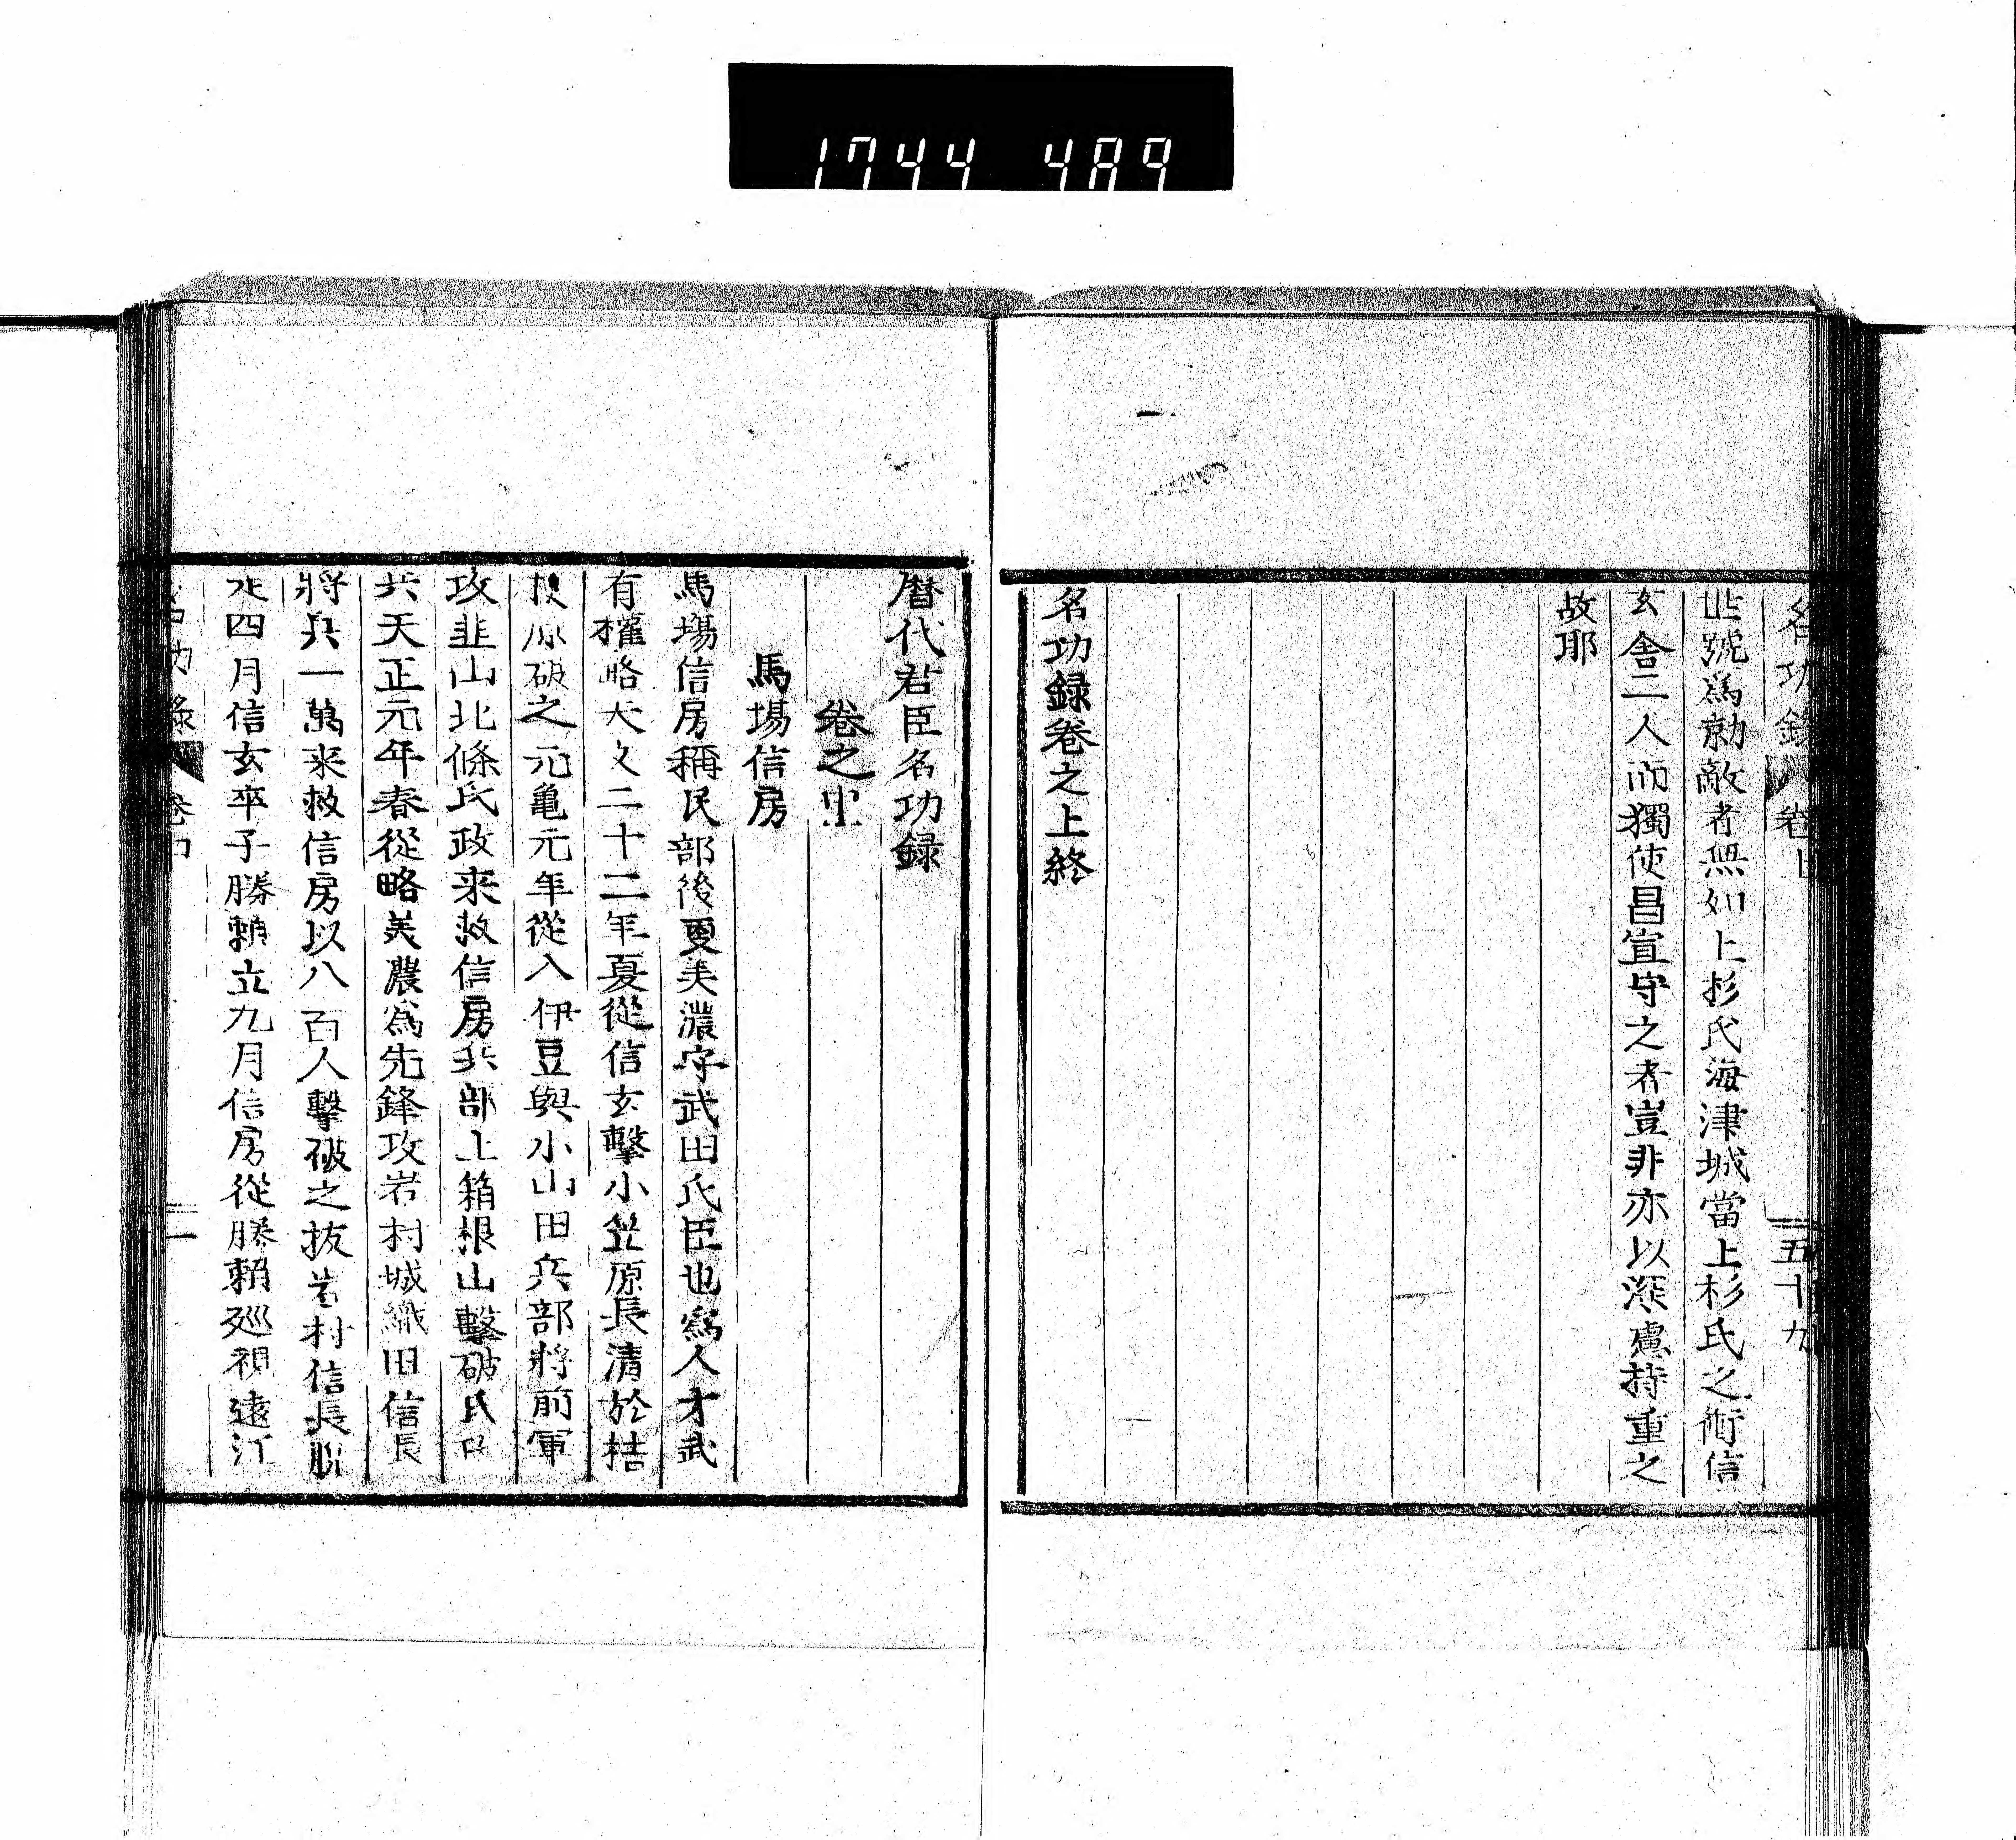 1744 489
名功錄 卷上 五十九
世號爲勍敵者無如上杉氏海津城當上杉氏之衝信
玄舍二人而獨使昌宣守之者豈非亦以深慮持重之
故耶
名功録卷之上終
暦代君臣名功録
卷之中
馬場信房
馬場信房稱民部後更美濃守武田氏臣也爲人才武
有權略天文二十二年夏從信玄擊小笠原長清於桔
原破之元亀元年從入伊豆與小山田兵部將前軍
攻韮山北條氏政来救信房兵部上箱根山擊破氏政
兵天正元年春從略美濃爲先鋒攻岩村城織田信長
將兵一萬来救信房以八百人擊破之抜岩村信長
走四月信玄卒子勝賴立九月信房從勝賴廵視遠江
名功錄 卷中 一